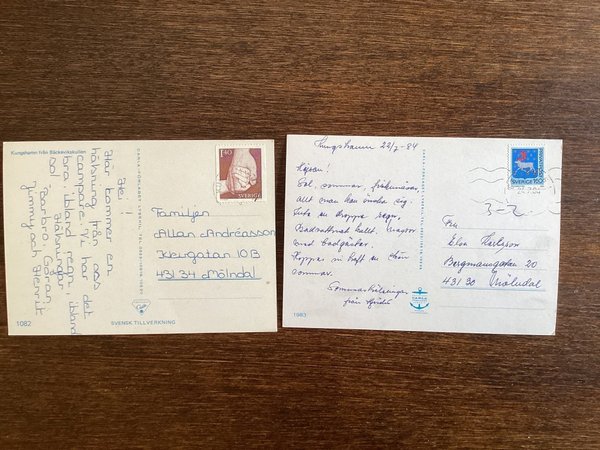 Kungshamn från Bäckevikskullen
Hej!
Här kommer en
hälsning från oss
campare. Vi har det
bra, ibland regn, ibland
sol. Hälsningar
Barbro, Göran,
Jimmy och Henrik
1.40
SVERIGE
Familjen
Allan Andréasson
Kleugatan 10 B
431 34 Mölndal
1082
SVENSK TILLVERKNING
Kungshamn 22/7-84
Hejsan!
Sol, sommar,
allt man kan önska sig.
Inte en droppe regn.
Badvattnet kallt.
med badgäster.
Hoppas ni haft en skön
sommar.
Sommarhälsningar
från
1983
SVERIGE
Fru
Elsa Karlsson
Bergmansgatan 20
431 30 Mölndal